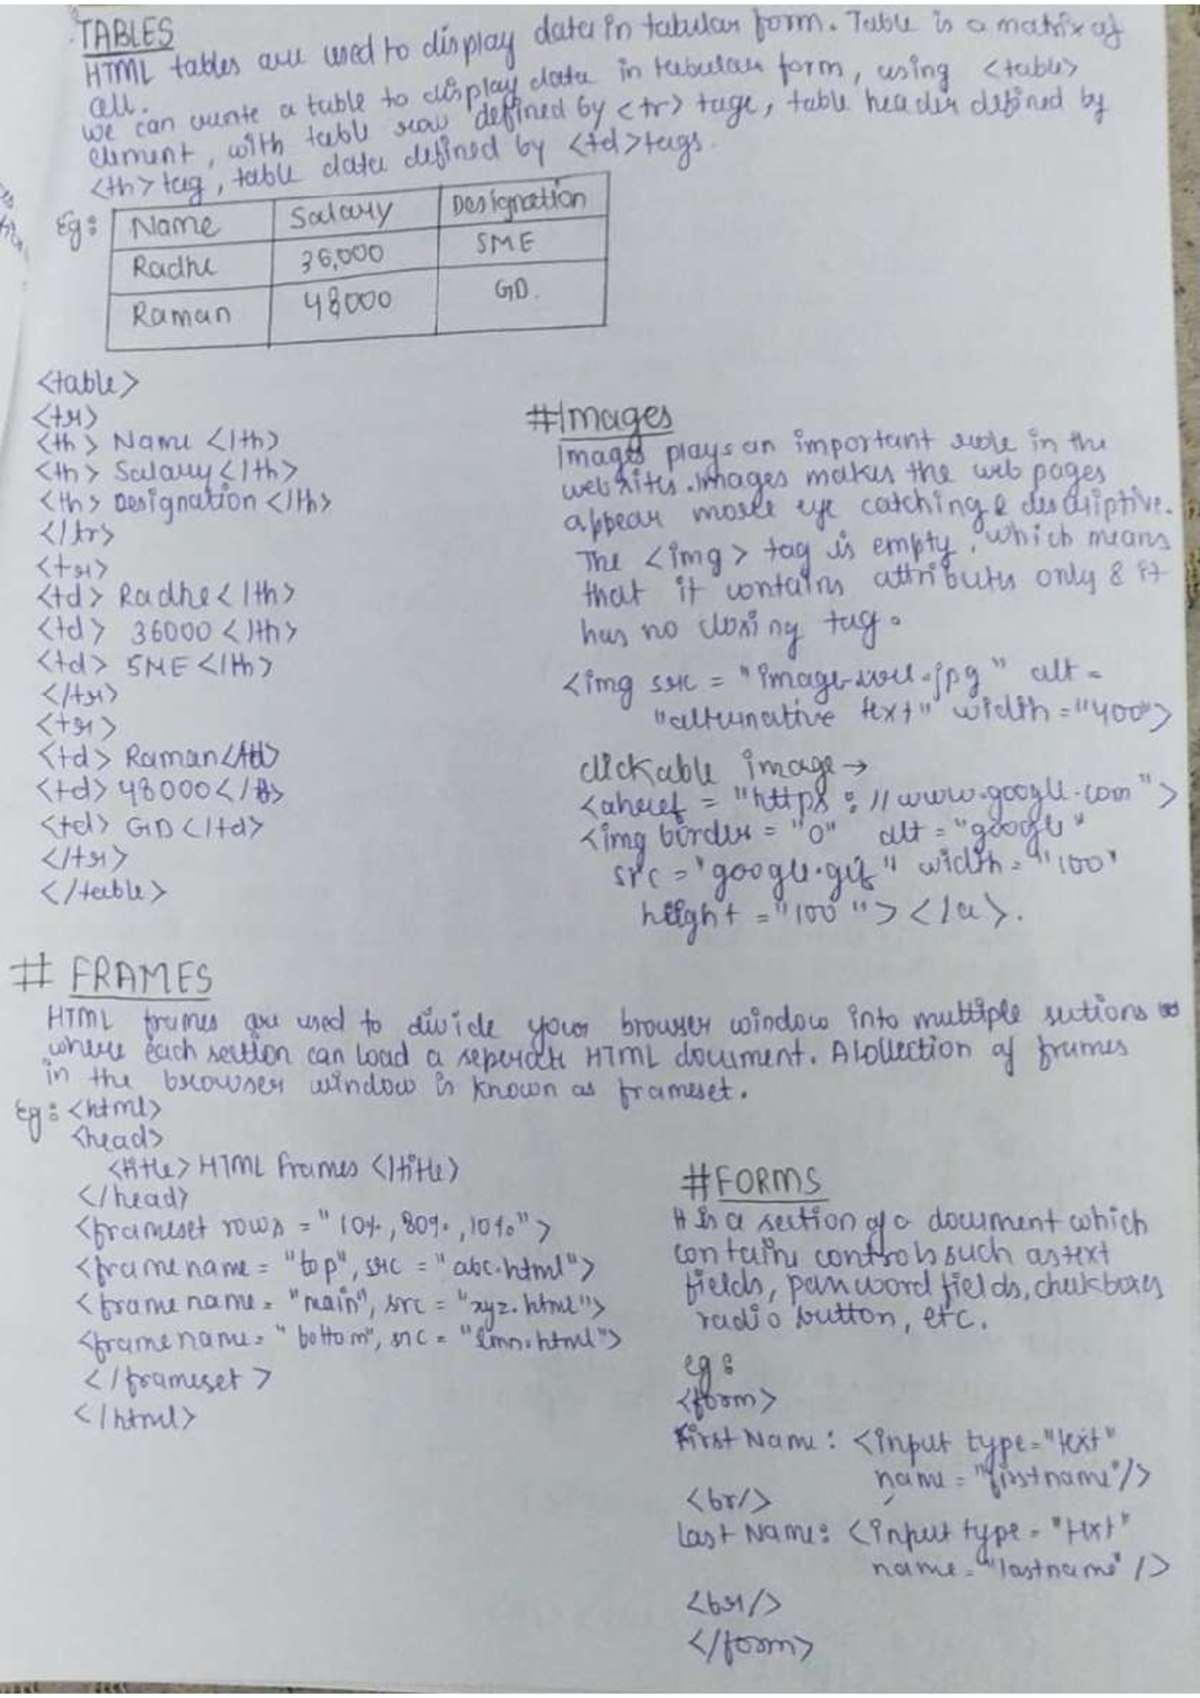 TABLES
HTML tables are used to display data in tabular form. Table is a matrix of
cell.
we can create a table to display data in tabular form, using <table>
element, with table row defined by <tr> tage, table header defined by
<th> tag, table data defined by <td> tags.
Eg:
Name Salary Designation
Radhe 36,000 SME
Raman 48000 GD.
<table>
<tr>
<th> Name </th>
<th> Salary </th>
<th> Designation </th>
</tr>
<tr>
<td> Radhe </th>
<td> 36000 </th>
<td> SME </th>
</tr>
<tr>
<td> Raman </td>
<td> 48000 </
<td> GD </td>
</tr>
</table>
#Images
Images plays an important role in the
websites. Images makes the web pages
appear more eye catching & descriptive.
The <img> tag is empty, which means
that it contains attributes only & it
has no closing tag.
<img src = "image-url.jpg" alt =
"alternative text" width = "400">
clickable image →
<ahref = "https://www.google.com">
<img border = "0" alt = "google"
src = "google.gif" width = "100"
height = "100"> </a>.
# FRAMES
HTML frames are used to divide your browser window into multiple sections
where each section can load a seperate HTML document. A collection of frames
in the browser window is known as frameset.
Eg: <html>
<head>
<title> HTML frames </title>
</head>
<frameset rows = "10%, 80%, 10%">
<frame name = "top", src = "abc.html">
<frame name = "main", src = "xyz.html">
<frame name = "bottom", src = "lmn.html">
</frameset>
</html>
#FORMS
It is a section of a document which
contains controls such as text
fields, password fields, checkboxes
radio button, etc.
eg:
<form>
First Name: <input type="text"
name = "firstname"/>
<br/>
Last Name: <input type = "text"
name = "lastname" />
<br/>
</form>